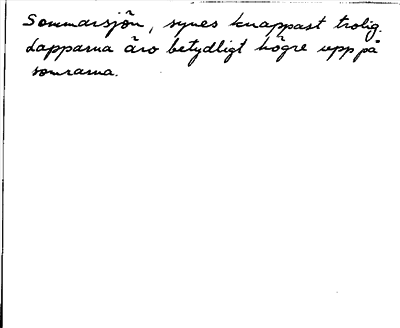 Sommarsjön, synes knappast trolig.
Lapparna äro betydligt högre upp på
somrarna.